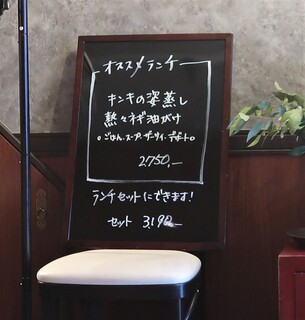 オススメランチ
キンキの姿蒸し
熱々ネギ油がけ
○ごはん、スープ、ザーサイ、デザート○
2750,—
ランチセットにできます!
セット 3,190—